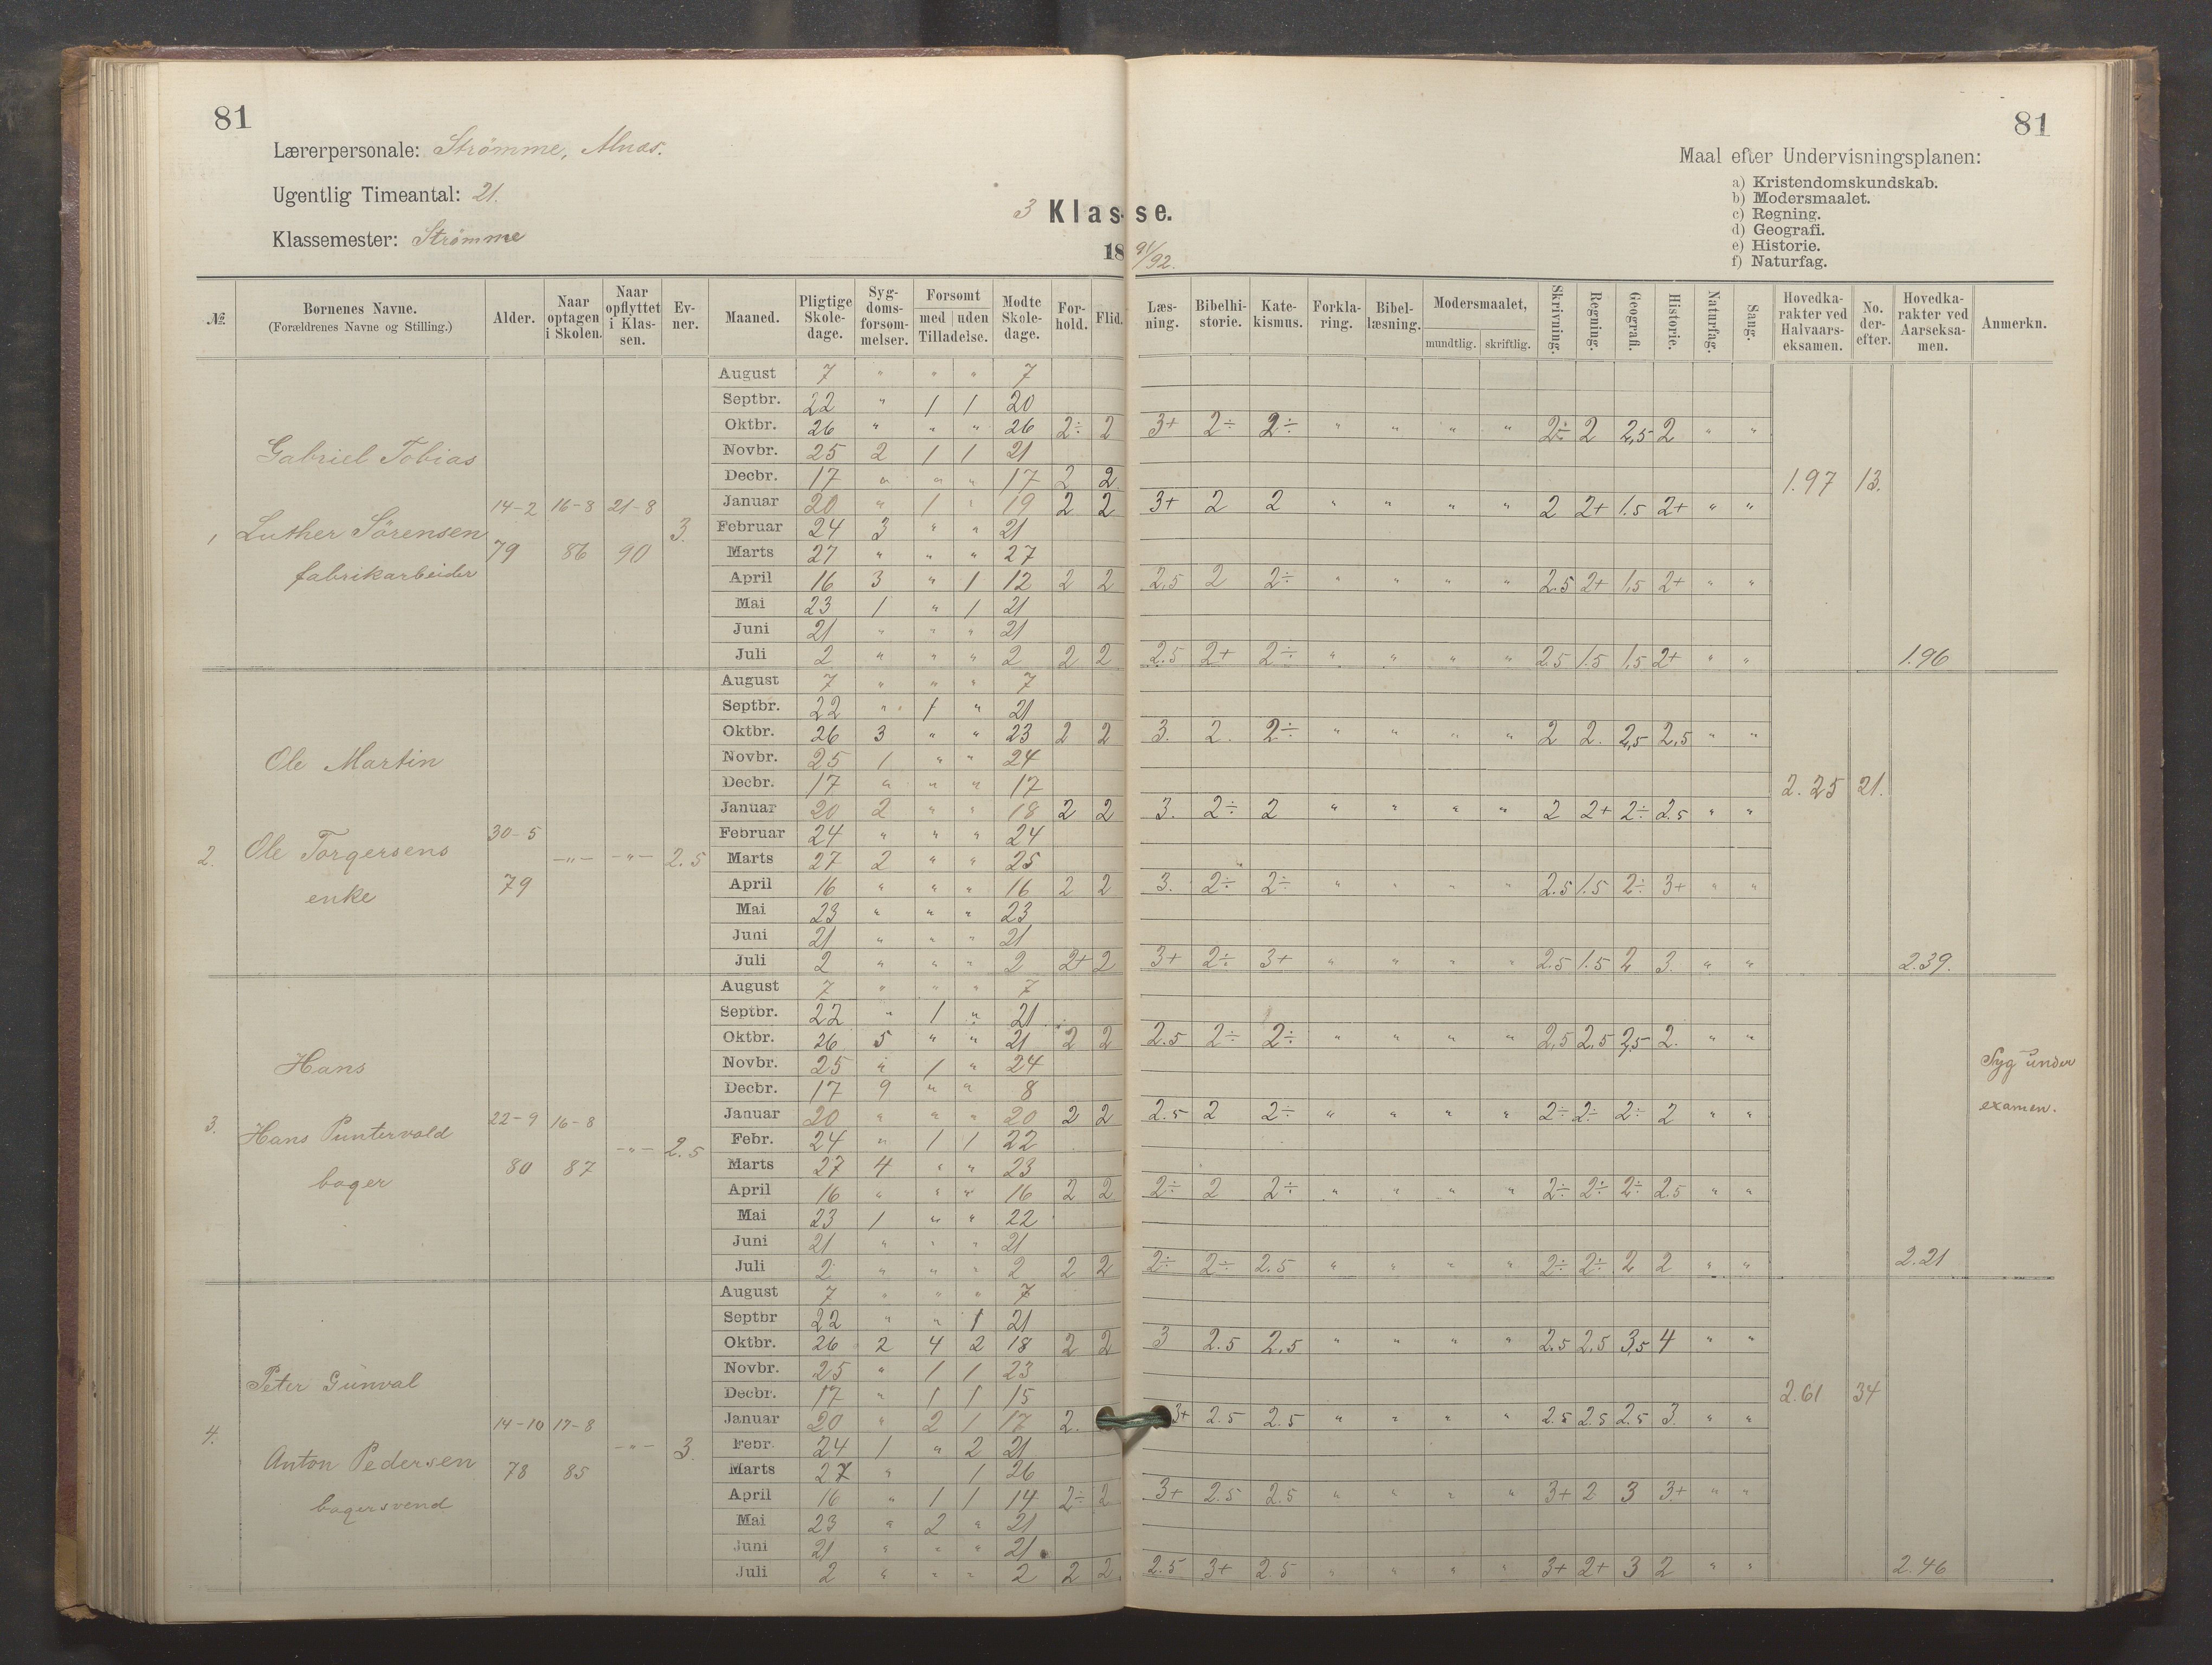 81
81
Lærerpersonale: Strömme, Alnæs.
Ugentlig Timeantal: 21.
Klassemester: Strömme
3 Klasse.
18 91/92.
Maal efter Undervisningsplanen:
a) Kristendomskundskab.
b) Modersmaalet.
c) Regning.
d) Geografi.
e) Historie.
f) Naturfag.
№ Bornenes Navne. (Forældrenes Navne og Stilling.) Alder. Naar optagen i Skolen. Naar opflyttet i Klassen. Evner. Maaned. Pligtige Skoledage. Sygdomsforsommelser. Forsomt med uden Tilladelse. Modte Skoledage. Forhold. Flid. Læsning. Bibelhistorie. Katekismus. Forklaring. Bibellæsning. Modersmaalet, mundtlig. skriftlig. Skrivning. Regning. Geografi. Historie. Naturfag. Sang. Hovedkarakter ved Halvaarseksamen. No. derefter. Hovedkarakter ved Aarseksamen. Anmerkn.
1 Gabriel Tobias
Luther Sörensen
fabrikarbeider
14-2 79 16-8 86 21-8 90 3.
August 7 " " " 7
Septbr. 22 " 1 1 20
Oktbr. 26 " " " 26 2÷ 2 3+ 2÷ 2÷ " " " " 2÷ 2 2,5 2 " "
Novbr. 25 2 1 1 21
Decbr. 17 " " " 17 2 2 1.97 13.
Januar 20 " 1 " 19 2 2 3+ 2 2 " " " " 2 2+ 1.5 2+ " "
Februar 24 3 " " 21
Marts 27 " " " 27
April 16 3 " 1 12 2 2 2.5 2 2÷ " " " " 2.5 2+ 1,5 2+ " "
Mai 23 1 " 1 21
Juni 21 " " " 21
Juli 2 " " " 2 2 2 2.5 2+ 2÷ " " " " 2.5 1.5 1,5 2+ " " 1.96
2. Ole Martin
Ole Torgersens
enke
30-5 79 -"- -"- 2.5
August 7 " " " 7
Septbr. 22 " 1 " 21
Oktbr. 26 3 " " 23 2 2 3. 2. 2÷ " " " " 2 2. 2,5 2,5 " "
Novbr. 25 1 " " 24
Decbr. 17 " " " 17 2.25 21.
Januar 20 2 " " 18 2 2 3. 2÷ 2 " " " " 2 2+ 2÷ 2.5 " "
Februar 24 " " " 24
Marts 27 2 " " 25
April 16 " " " 16 2 2 3. 2÷ 2÷ " " " " 2.5 1.5 2÷ 3+ " "
Mai 23 " " " 23
Juni 21 " " " 21
Juli 2 " " " 2 2+ 2 3+ 2÷ 3+ " " " " 2.5 1.5 2 3. " " 2.39.
3. Hans
Hans Puntervold
bager
22-9 80 16-8 87 -"- 2.5
August 7 " " " 7
Septbr. 22 " 1 " 21
Oktbr. 26 5 " " 21 2 2 2.5 2÷ 2÷ " " " " 2,5 2,5 2,5 2. " "
Novbr. 25 " 1 " 24
Syg under
Decbr. 17 9 " " 8
examen.
Januar 20 " " " 20 2 2 2.5 2 2÷ " " " " 2÷ 2÷ 2÷ 2 " "
Febr. 24 " 1 1 22
Marts 27 4 " " 23
April 16 " " " 16 2 2 2÷ 2 2÷ " " " " 2÷ 2÷ 2÷ 2.5 " "
Mai 23 1 " " 22
Juni 21 " " " 21
Juli 2 " " " 2 2 2 2÷ 2÷ 2.5 " " " " 2÷ 2÷ 2 2 " " 2.21
4. Peter Gunval
Anton Pedersen
bagersvend
14-10 78 17-8 85 -"- 3
August 7 " " " 7
Septbr 22 " " 1 21
Oktbr. 26 2 4 2 18 2 2 3 2.5 2,5 " " " " 2.5 2,5 3,5 4 " "
Novbr. 25 " 1 1 23
Decbr. 17 " 1 1 15 2.61 34
Januar 20 " 2 1 17 2. 3+ 2.5 2.5 " " " " 2.5 2.5 2.5 3. " "
Febr. 24 1 " 2 21
Marts 27 " 1 26
April 16 " 1 1 14 2÷ 2 3+ 2.5 2.5 " " " " 3+ 2 3 3+ " "
Mai 23 " 2 " 21
Juni 21 " " " 21
Juli 2 " " " 2 2 2 2.5 3+ 2.5 " " " " 3+ 2+ 3 2 " " 2.46